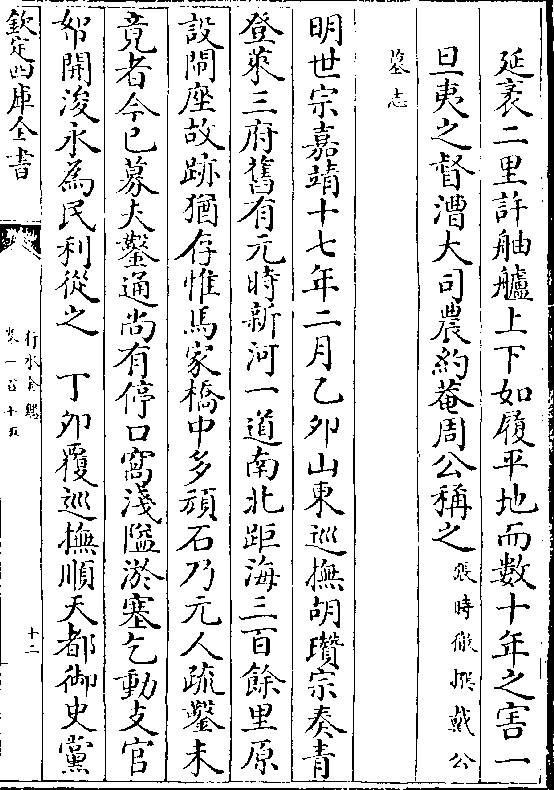 延袤二里許舳艫上下如履平地而數十年之害一
旦夷之督漕大司農約菴周公稱之張時徹撰戴公
墓志
明世宗嘉靖十七年二月乙卯山東巡撫胡瓚宗奏青
登萊三府舊有元時新河一道南北距海三百餘里原
設閘座故跡猶存惟馬家橋中多頑石乃元人疏鑿未
竟者今已募夫鑿通尚有停口窩淺隘淤塞乞動支官
帑開浚永為民利從之 丁卯覆巡撫順天都御史黨
欽定四庫全書
行水金鑑
卷一百十五
十二